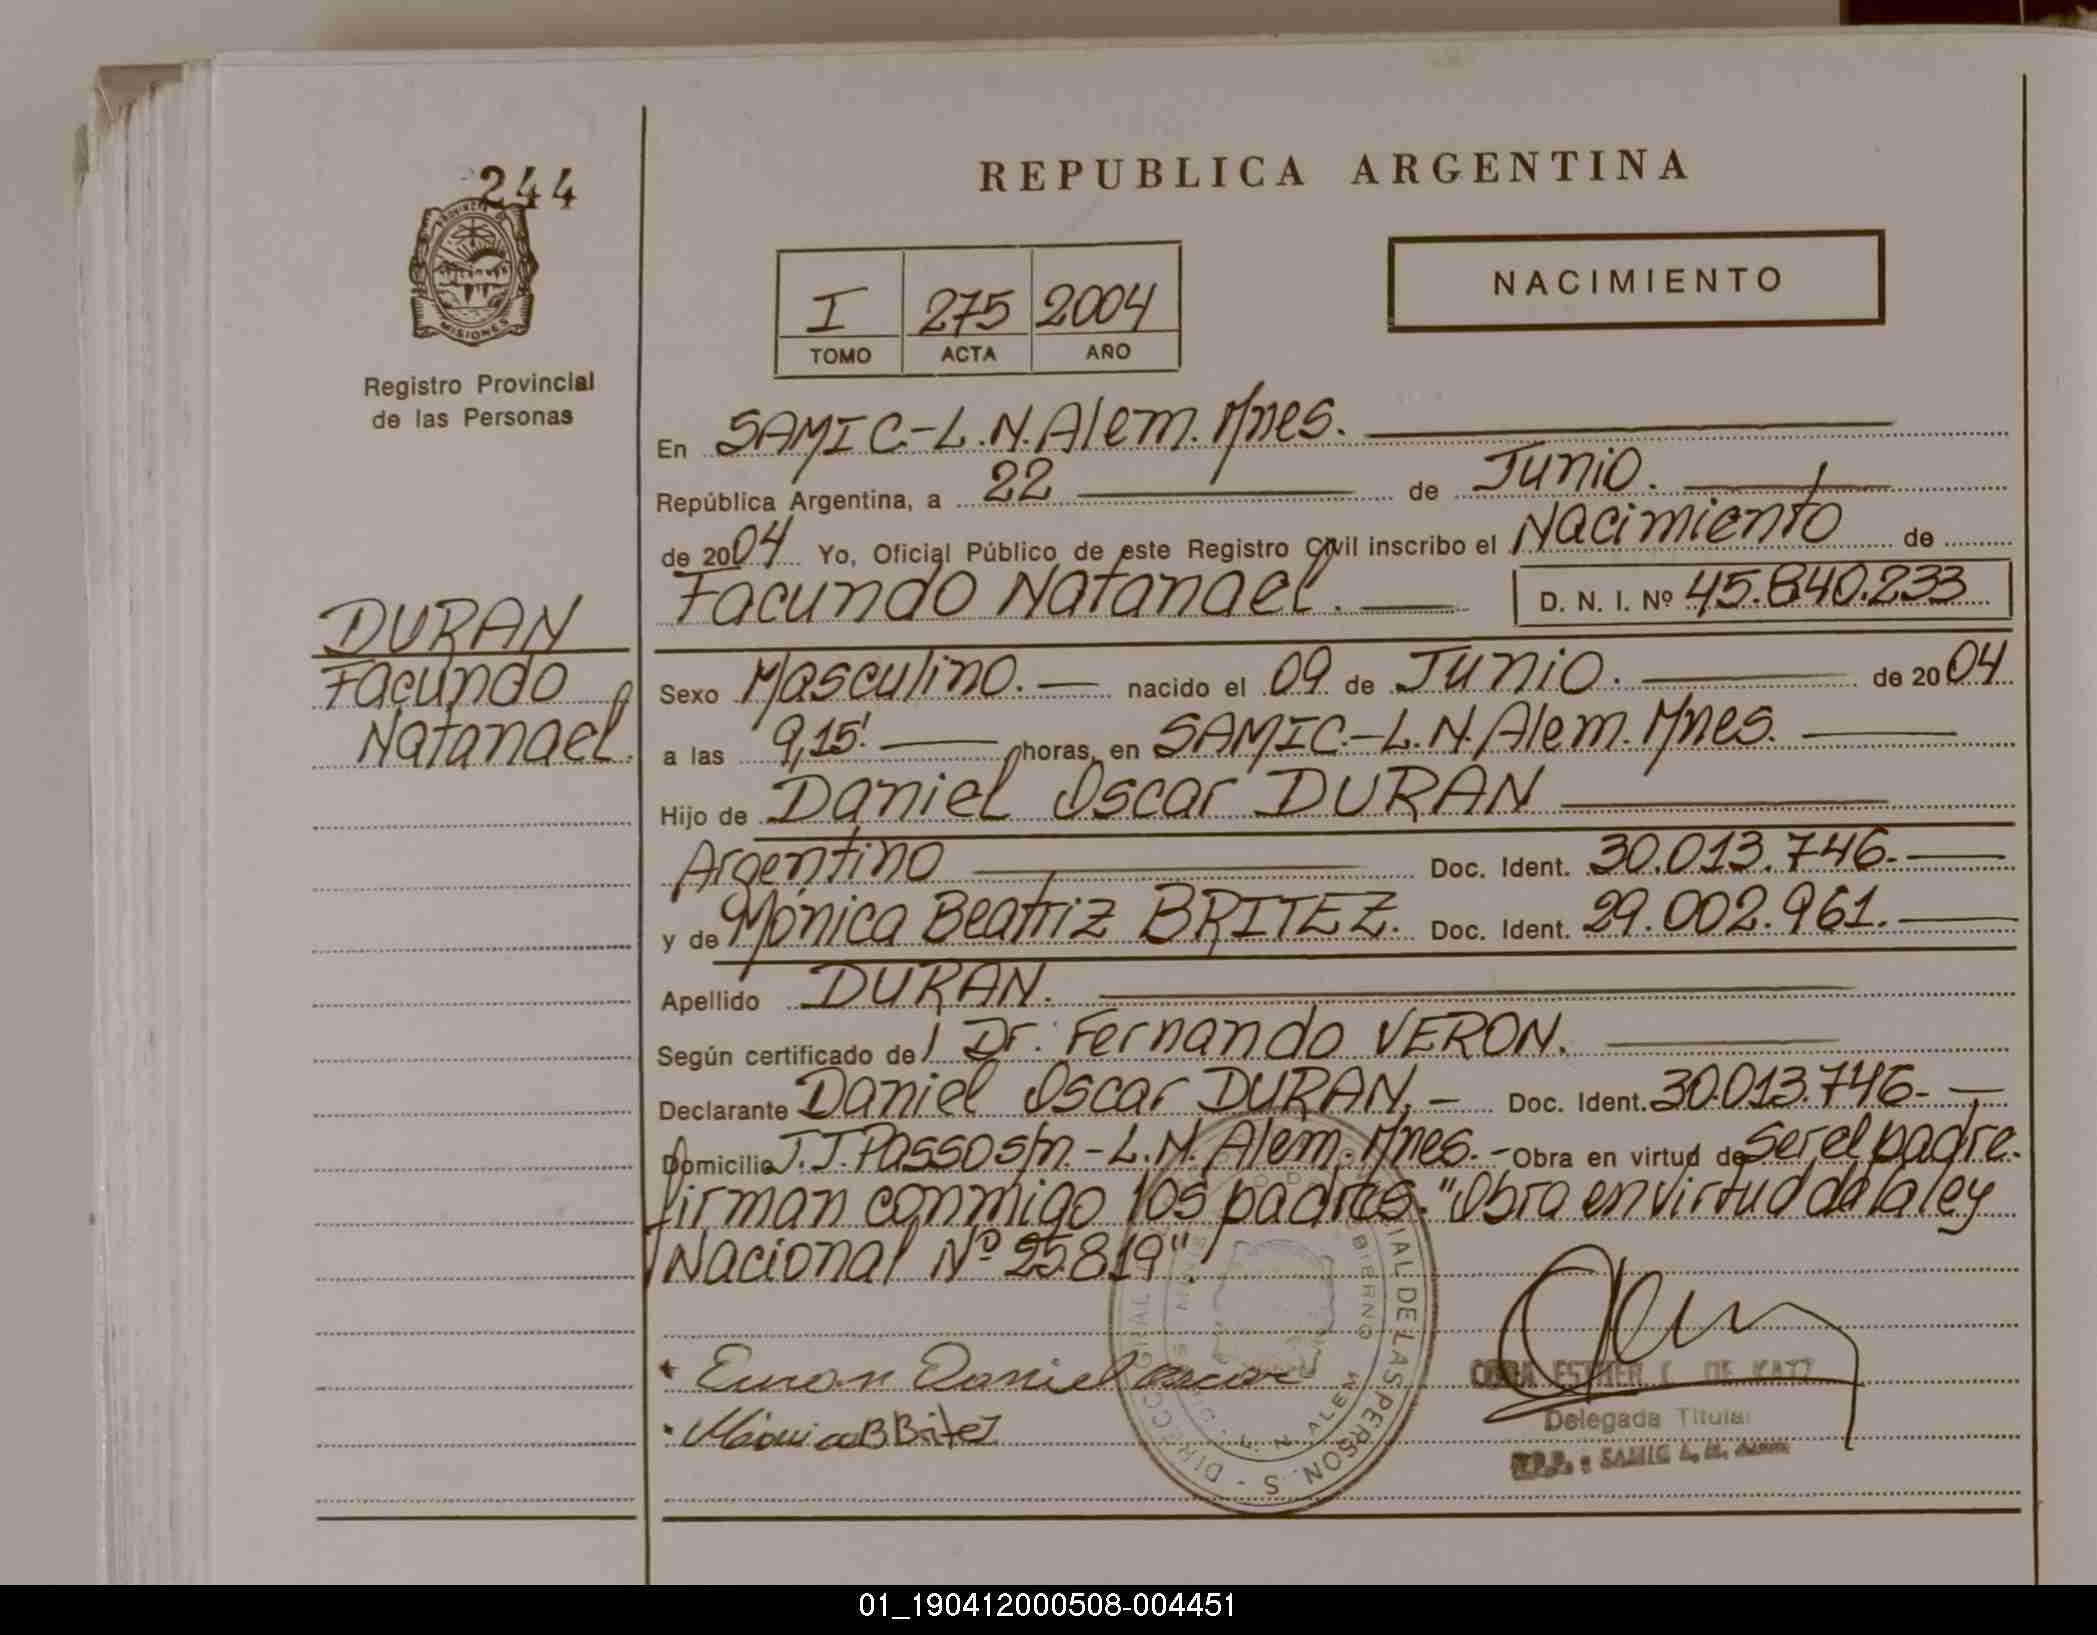 244
PROVINCIA DE
MISIONES
Registro Provincial
de las Personas
DURAN
Facundo
Natanael.
REPUBLICA ARGENTINA
I 275 2004
TOMO ACTA AÑO
NACIMIENTO
En SAMIC-L.N.Alem.Mnes.
República Argentina, a 22 de Junio.
de 2004 Yo, Oficial Público de este Registro Civil inscribo el Nacimiento de
Facundo Natanael. D. N. I. Nº 45.840.233
Sexo Masculino. nacido el 09 de Junio. de 2004
a las 9,15' horas, en SAMIC.-L.N.Alem.Mnes.
Hijo de Daniel Oscar DURAN
Argentino Doc. Ident. 30.013.746.
y de Mónica Beatriz BRITEZ. Doc. Ident. 29.002.961.
Apellido DURAN.
Según certificado del Dr. Fernando VERON.
Declarante Daniel Oscar DURAN. Doc. Ident. 30.013.746-
Domicilio J.J.Passo s/n.-L.N.Alem.Mnes.- Obra en virtud de ser el padre.
firman conmigo los padres. "Obra en virtud de la ley
Nacional Nº 25.819".
Duran Daniel Oscar
Mónica B Britez
ESTHER C. DE KATZ
Delegada Titular
R.P.P. : SAMIC L. N. Alem
L. N. ALEM
01_190412000508-004451